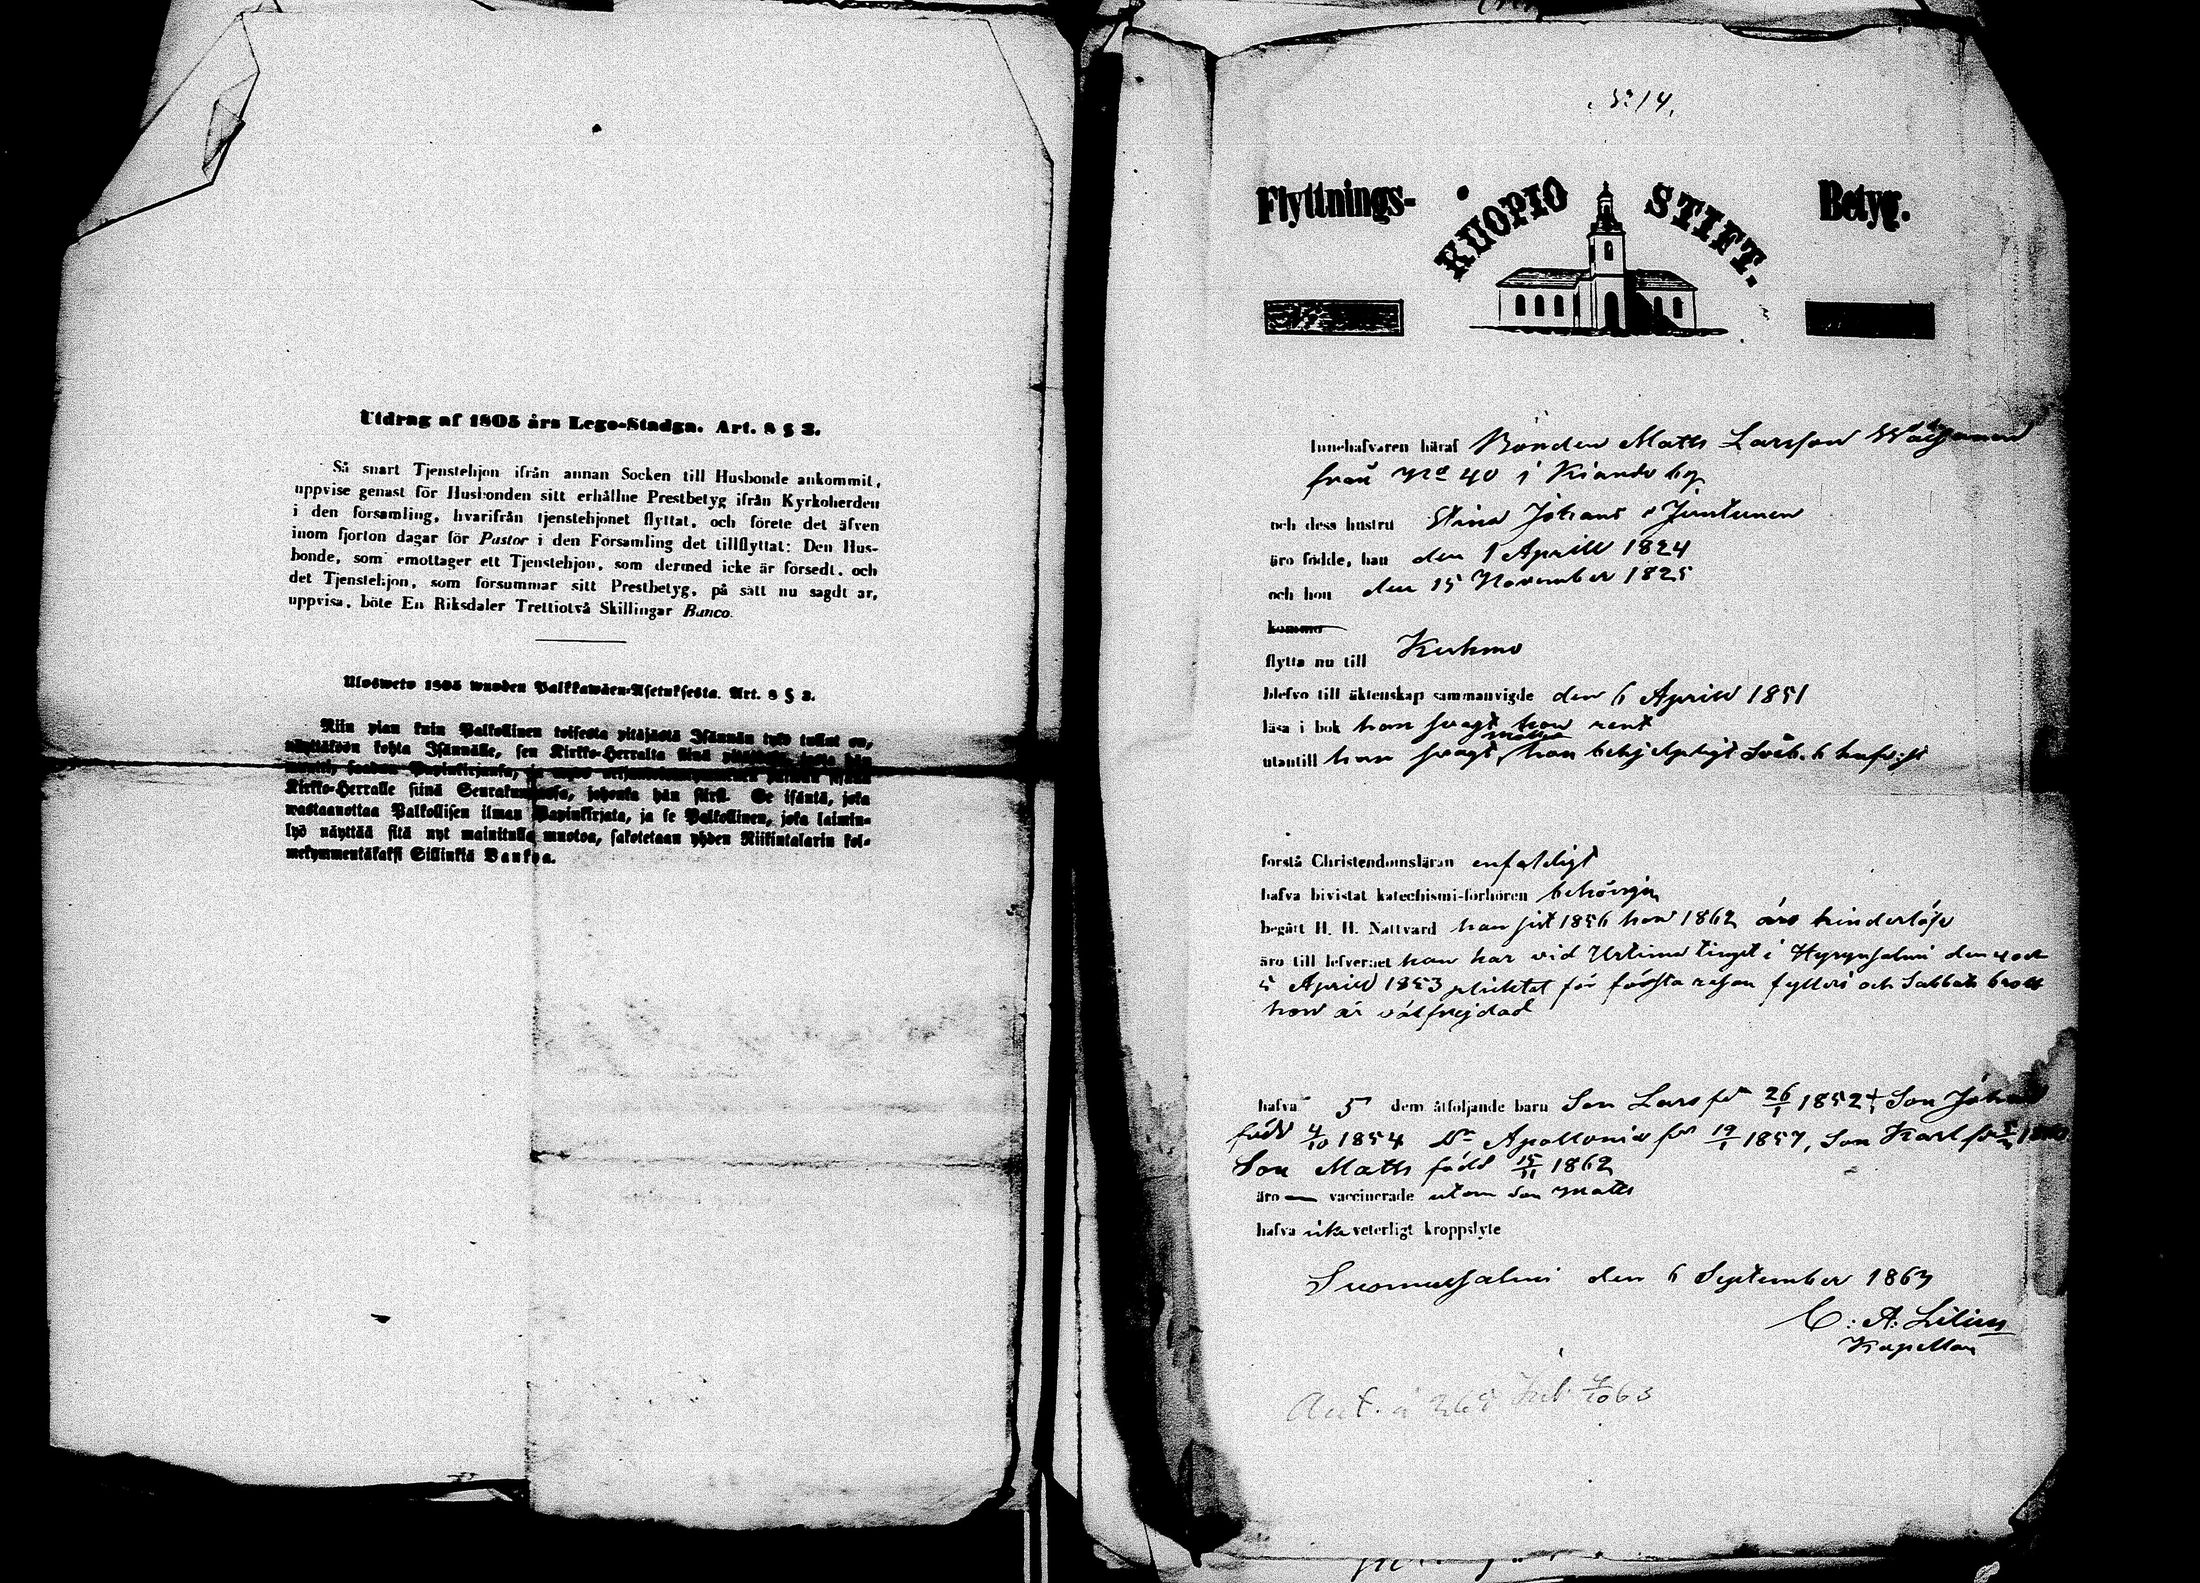 Utdrag af 1805 års Lego-Stadga. Art. 8 § 3.
Så snart Tjenstehjon ifrån annan Socken till Husbonde ankommit,
uppvise genast för Husbonden sitt erhållne Prestbetyg ifrån Kyrkoherden
i den församling, hvarifrån tjenstehjonet flyttat, och förete det äfven
inom fjorton dagar för Pastor i den Församling det tillflyttat: Den Hus-
bonde, som emottager ett Tjenstehjon, som dermed icke är försedt, och
det Tjenstehjon, som försummar sitt Prestbetyg, på sätt nu sagdt är,
uppvisa, böte En Riksdaler Trettiotvå Skillingar Banco.
Ulosweto 1805 wuoden Palkkawäen-Asetuksesta. Art. 8 § 3.
Niin pian kuin Palkollinen toisesta pitäjästä Isännän tykö tullut on,
näyttäköön kohta Isännälle, sen Kirkko-Herralta siinä
Kirkko-Herralle siinä Seurakunnassa, johonka hän siirsi. Se isäntä, joka
wastaanottaa Palkollisen ilman Papinkirjata, ja se Palkollinen, joka laimin-
lyö näyttää sitä nyt mainitulla muotoa, sakotetaan yhden Riikintalarin kol-
mekymmentäkaksi Sillinkiä Bankoa.
No 14.
Flyttnings- KUOPIO STIFT. Betyg.
Innehafvaren häraf Bonden Matts Larsson
från No 40 i Kiando by
och dess hustru Stina Johans d Juntunen
äro födde, han den 1 Aprill 1824
och hon den 15 November 1825
komma
flytta nu till Kuhmo
blefvo till äktenskap sammanvigde den 6 Aprill 1851
läsa i bok han svagt hon rent
utantill han svagt, hon behjelpligt
förstå Christendomsläran enfaldigt
hafva bivistat katechismi-förhören behörigen
begått H. H. Nattvard han sist 1856 hon 1862 äro hinderlöse
äro till lefvernet han har vid Urtima tinget i Hyrynsalmi den 4 och
5 Aprill 1853 pliktat för första resan fylleri och Sabbats brott
hon är välfrejdad
hafva 5 dem åtföljande barn Son Lars fö 26/1 1852, Son Johan
född 4/10 1854 Dr Apollonia för 19/1 1857, Son Karl
Son Matts född 15/11 1862
äro — vaccinerade utom Son Matts
hafva icke veterligt kroppslyte
Suomussalmi den 6 September 1863
C: A: Lilius
Kapellan